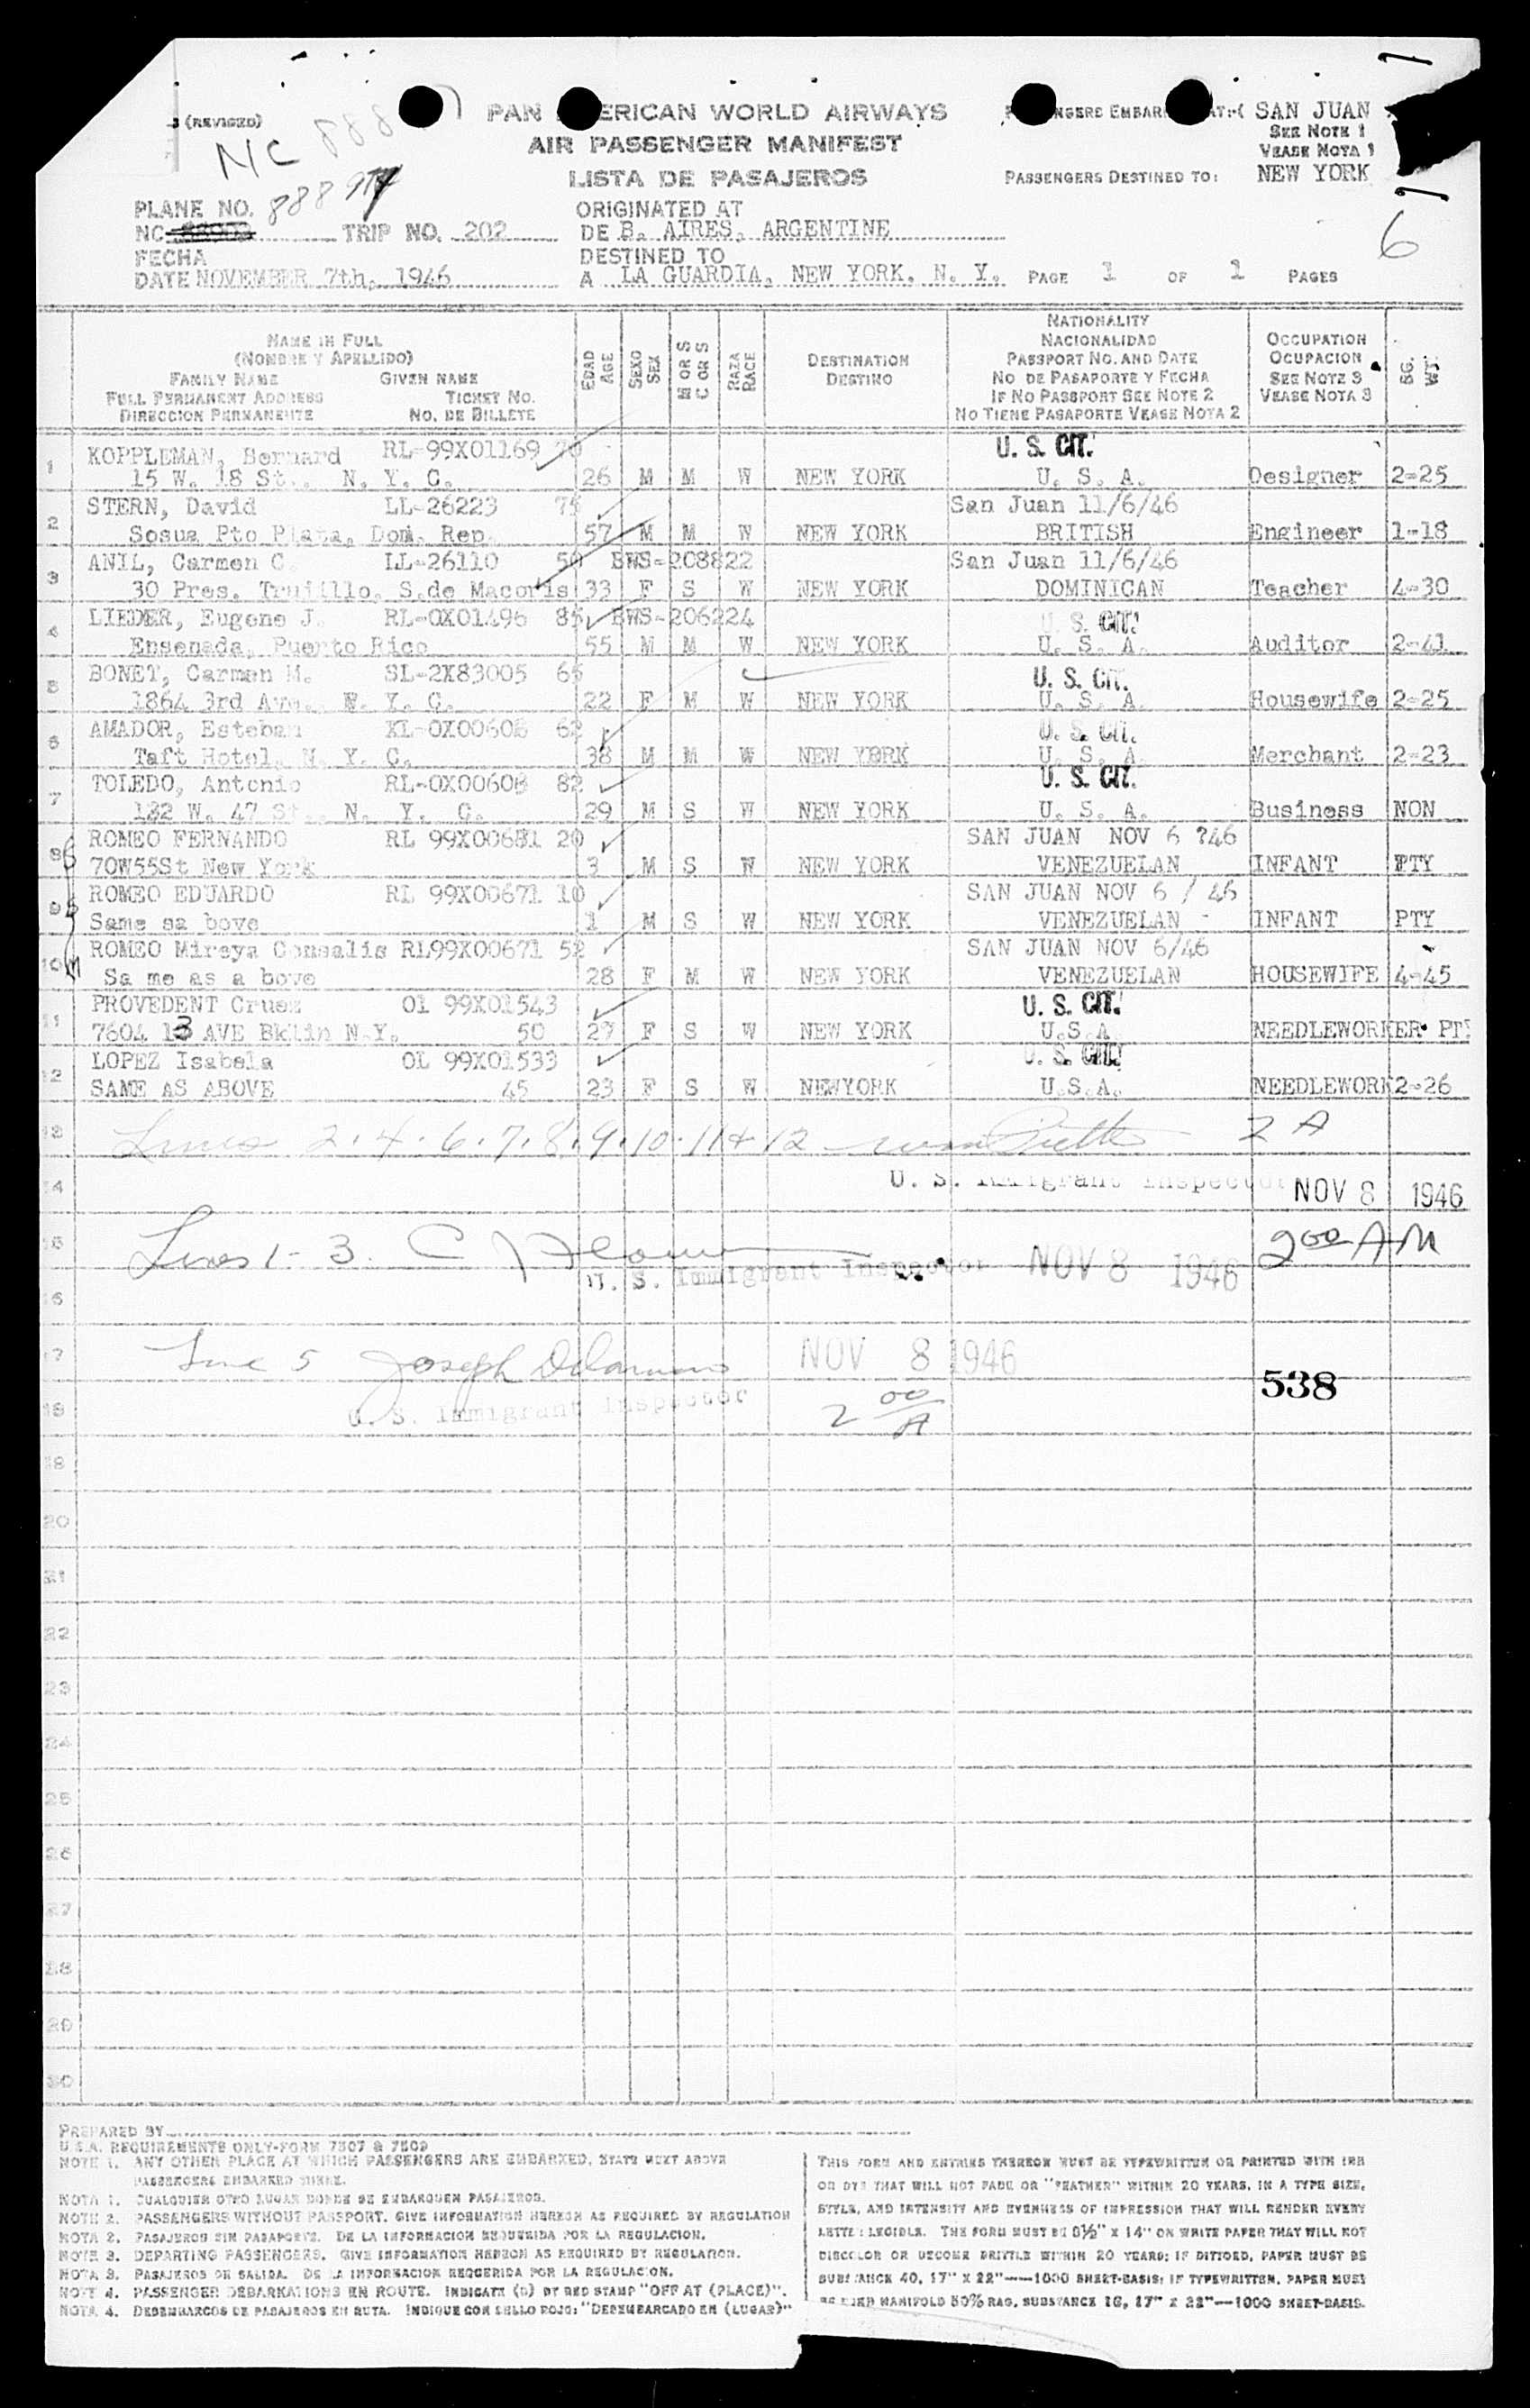 (REVISED)
NC 888
PAN AMERICAN WORLD AIRWAYS
AIR PASSENGER MANIFEST
LISTA DE PASAJEROS
PASSENGERS EMBARK AT: SAN JUAN
SEE NOTE 1
VEASE NOTA 1
PASSENGERS DESTINED TO: NEW YORK
PLANE NO. 888
NC TRIP NO. 202
ORIGINATED AT
DE B. AIRES, ARGENTINE
6
FECHA
DATE NOVEMBER 7th, 1946
DESTINED TO
A LA GUARDIA, NEW YORK, N. Y. PAGE 1 OF 1 PAGES
NAME IN FULL
(NOMBRE Y APELLIDO)
FAMILY NAME GIVEN NAME
FULL PERMANENT ADDRESS TICKET NO.
DIRECCION PERMANENTE NO. DE BILLETE
EDAD AGE
SEXO SEX
M OR S C OR S
RAZA RACE
DESTINATION
DESTINO
NATIONALITY
NACIONALIDAD
PASSPORT NO. AND DATE
NO DE PASAPORTE Y FECHA
IF NO PASSPORT SEE NOTE 2
NO TIENE PASAPORTE VEASE NOTA 2
OCCUPATION
OCUPACION
SEE NOTE 3
VEASE NOTA 3
BG. WT.
1 KOPPLEMAN, Bernard RL-99X01169 70 U. S. CIT.
15 W. 18 St., N. Y. C. 26 M M W NEW YORK U. S. A. Designer 2-25
2 STERN, David LL-26223 75 San Juan 11/6/46
Sosua Pto Plata, Dom. Rep. 57 M M W NEW YORK BRITISH Engineer 1-18
3 ANIL, Carmen C. LL-26110 50 BWS-208822 San Juan 11/6/46
30 Pres. Trujillo, S.de Macoris 33 F S W NEW YORK DOMINICAN Teacher 4-30
4 LIEDER, Eugene J. RL-0X01496 85 BWS-206224 U. S. CIT.
Ensenada, Puerto Rico 55 M M W NEW YORK U. S. A. Auditor 2-41
5 BONET, Carmen M. SL-2X83005 65 U. S. CIT.
1864 3rd Ave., N. Y. C. 22 F M W NEW YORK U. S. A. Housewife 2-25
6 AMADOR, Esteban XL-0X00608 62 U. S. CIT.
Taft Hotel, N. Y. C. 38 M M W NEW YORK U. S. A. Merchant 2-23
7 TOLEDO, Antonio RL-0X00608 82 U. S. CIT.
132 W. 47 St., N. Y. C. 29 M S W NEW YORK U. S. A. Business NON
8 ROMEO FERNANDO RL 99X00681 20 SAN JUAN NOV 6 ?46
70W55St New York 3 M S W NEW YORK VENEZUELAN INFANT PTY
9 ROMEO EDUARDO RL 99X00671 10 SAN JUAN NOV 6 / 46
Same sa bove 1 M S W NEW YORK VENEZUELAN - INFANT PTY
10 ROMEO Mireya Consalis RL99X00671 52 SAN JUAN NOV 6/46
Sa me as a bove 28 F M W NEW YORK VENEZUELAN HOUSEWIFE 4-45
11 PROVEDENT Cruez Ol 99X01543 U. S. CIT.
7604 13 AVE Bklin N.Y. 50 27 F S W NEW YORK U.S.A. NEEDLEWORKER PTY
12 LOPEZ Isabela OL 99X01533 U. S. CIT.
SAME AS ABOVE 45 23 F S W NEWYORK U.S.A. NEEDLEWORK 2-26
13 Lines 2.4.6.7.8.9.10.11 & 12 2 A
14 U. S. Immigrant Inspector NOV 8 1946
15 Lines 1-3. NOV 8 1946 2 00 AM
U. S. Immigrant Inspector
16
17 Line 5 Joseph NOV 8 1946
538
18 U. S. Immigrant Inspector 2 00 A
19
20
21
22
23
24
25
26
27
28
29
30
PREPARED BY
U.S.A. REQUIREMENTS ONLY-FORM 7507 & 7509
NOTE 1. ANY OTHER PLACE AT WHICH PASSENGERS ARE EMBARKED, STATE NEXT ABOVE
PASSENGERS EMBARKED THERE.
NOTA 1. CUALQUIER OTRO LUGAR DONDE SE EMBARQUEN PASAJEROS.
NOTE 2. PASSENGERS WITHOUT PASSPORT. GIVE INFORMATION HEREON AS REQUIRED BY REGULATION
NOTA 2. PASAJEROS SIN PASAPORTE. DE LA INFORMACION REQUERIDA POR LA REGULACION.
NOTE 3. DEPARTING PASSENGERS. GIVE INFORMATION HEREON AS REQUIRED BY REGULATION.
NOTA 3. PASAJEROS DE SALIDA. DE LA INFORMACION REQUERIDA POR LA REGULACION.
NOTE 4. PASSENGER DEBARKATIONS EN ROUTE. INDICATE (D) BY RED STAMP "OFF AT (PLACE)".
NOTA 4. DESEMBARCOS DE PASAJEROS EN RUTA. INDIQUE CON SELLO ROJO: "DESEMBARCADO EN (LUGAR)"
THIS FORM AND ENTRIES THEREON MUST BE TYPEWRITTEN OR PRINTED WITH INK
OR DYE THAT WILL NOT FADE OR "FEATHER" WITHIN 20 YEARS, IN A TYPE SIZE,
STYLE, AND INTENSITY AND EVENNESS OF IMPRESSION THAT WILL RENDER EVERY
LETTER LEGIBLE. THE FORM MUST BE 8½" X 14" ON WHITE PAPER THAT WILL NOT
DISCOLOR OR BECOME BRITTLE WITHIN 20 YEARS; IF DITTOED, PAPER MUST BE
SUBSTANCE 40, 17" X 22"——1000 SHEET-BASIS; IF TYPEWRITTEN, PAPER MUST
MANIFOLD 50% RAG, SUBSTANCE 16, 17" X 22"—1000 SHEET-BASIS.